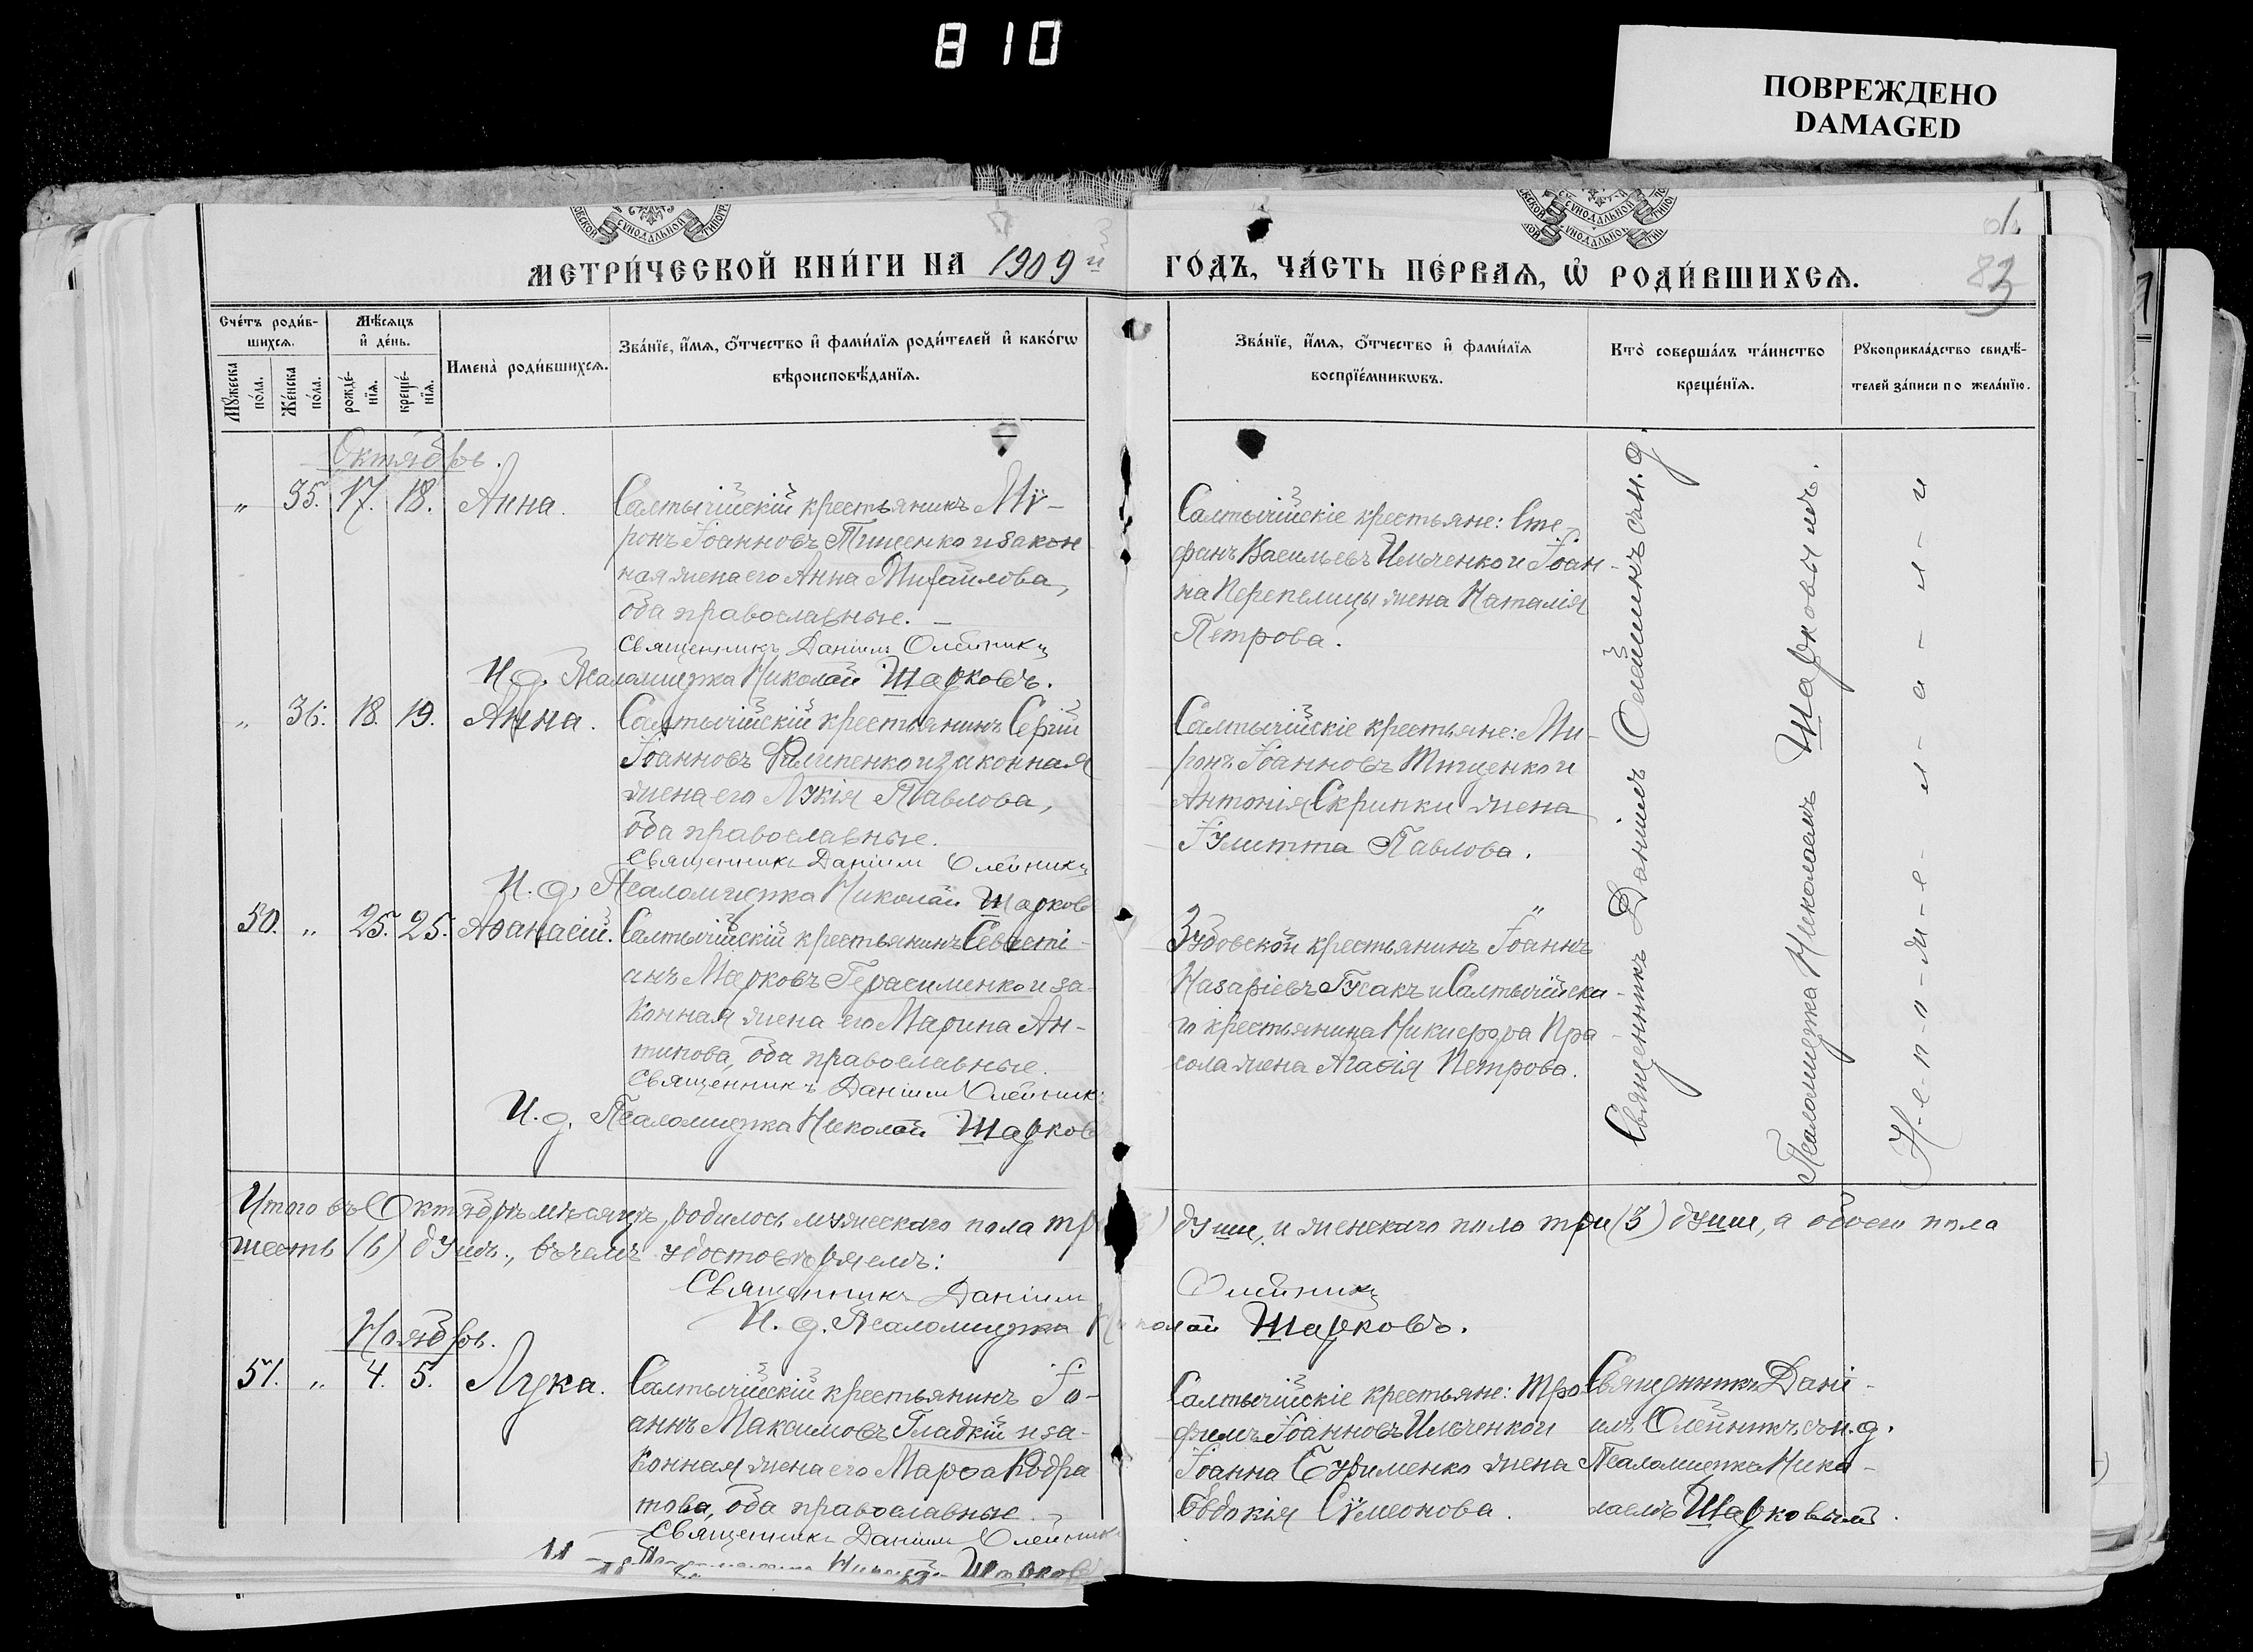 810
ПОВРЕЖДЕНО
DAMAGED
МЕТРИ́ЧЕСКОЙ КНИ́ГИ НА 1909й ГО́ДЪ, ЧА́СТЬ ПЕ́РВАѦ, Ѡ҆ РОДИ́ВШИХСѦ.
83
Сче́тъ роди́вшихсѧ.
Мѣ́сѧцъ и҆ де́нь.
Имена̀ роди́вшихсѧ.
Зва́нїе, и҆́мѧ, ѻ҆́тчество и҆ фами́лїѧ роди́телей и҆ како́гѡ
вѣроисповѣ́данїѧ.
Зва́нїе, и҆́мѧ, ѻ҆́тчество и҆ фами́лїѧ
воспрїе́мникѡвъ.
Кто̀ соверша́лъ та́инство
креще́нїѧ.
Рꙋкоприкла́дство свидѣ́-
телей за́писи по жела́нїю.
Мꙋ́жеска по́ла.
Же́нска по́ла.
рожде́-
нїѧ.
креще́-
нїѧ.
Октябрь.
„ 35. 17. 18. Анна.
Салтычійскій крестьянинъ Мѵ-
ронъ Іоанновъ Тищенко и закон
ная жена его Анна Михайлова,
оба православные. —
Священникъ Даніилъ Олейникъ
И. д. Псаломщика Николай Шарковъ.
Салтычійскіе крестьяне: Сте-
фанъ Васильевъ Ильченко и Іоан-
на Перепелицы жена Наталія
Петрова.
„ 36. 18. 19. Анна.
Салтычійскій крестьянинъ Сергій
Іоанновъ Филипенко и законная
жена его Лукія Павлова,
оба православные.
Священникъ Даніилъ Олейникъ
И. д. Псаломщика Николай Шарковъ
Салтычійскіе крестьяне: Ми-
ронъ Іоанновъ Тищенко и
Антонія Скрипки жена
Іулитта Павлова.
50. „ 25. 25. Аѳанасій.
Салтычійскій крестьянинъ Севасті-
анъ Марковъ Герасименко и за-
конная жена его Марина Ан-
типова, оба православные.
Священникъ Даніилъ Олейникъ
И. д. Псаломщика Николай Шарковъ
Зубовской крестьянинъ Іоаннъ
Назаріевъ Гусакъ и Салтычійска-
го крестьянина Никифора Пра-
сола жена Агаѳія Петрова.
Священникъ Даніилъ Олейникъ съ и. д.
Псаломщика Николаемъ Шарковымъ.
Н-е-п-о-ж-е-л-а-л-и
Итого въ Октябрѣ мѣсяцѣ, родилось мужескаго пола тр ) души, и женскаго пола три (3) души, а обоего пола
шесть (6) душъ., въ чемъ удостовѣряемъ:
Священникъ Даніилъ Олейникъ
И. д. Псаломщика Николай Шарковъ.
Ноябрь.
51. „ 4. 5. Лука.
Салтычійскій крестьянинъ Іо-
аннъ Максимовъ Гладкій и за-
конная жена его Марѳа Кодра
това, оба православные. —
Священникъ Даніилъ Олейникъ
Псаломщика Николай Шарковъ
Салтычійскіе крестьяне: Тро
фимъ Іоанновъ Ильченко и
Іоанна Ефименко жена
Евдокія Сѵмеонова.
Священникъ Дані-
илъ Олейникъ съ и. д.
Псаломщика Нико-
лаемъ Шарковымъ.